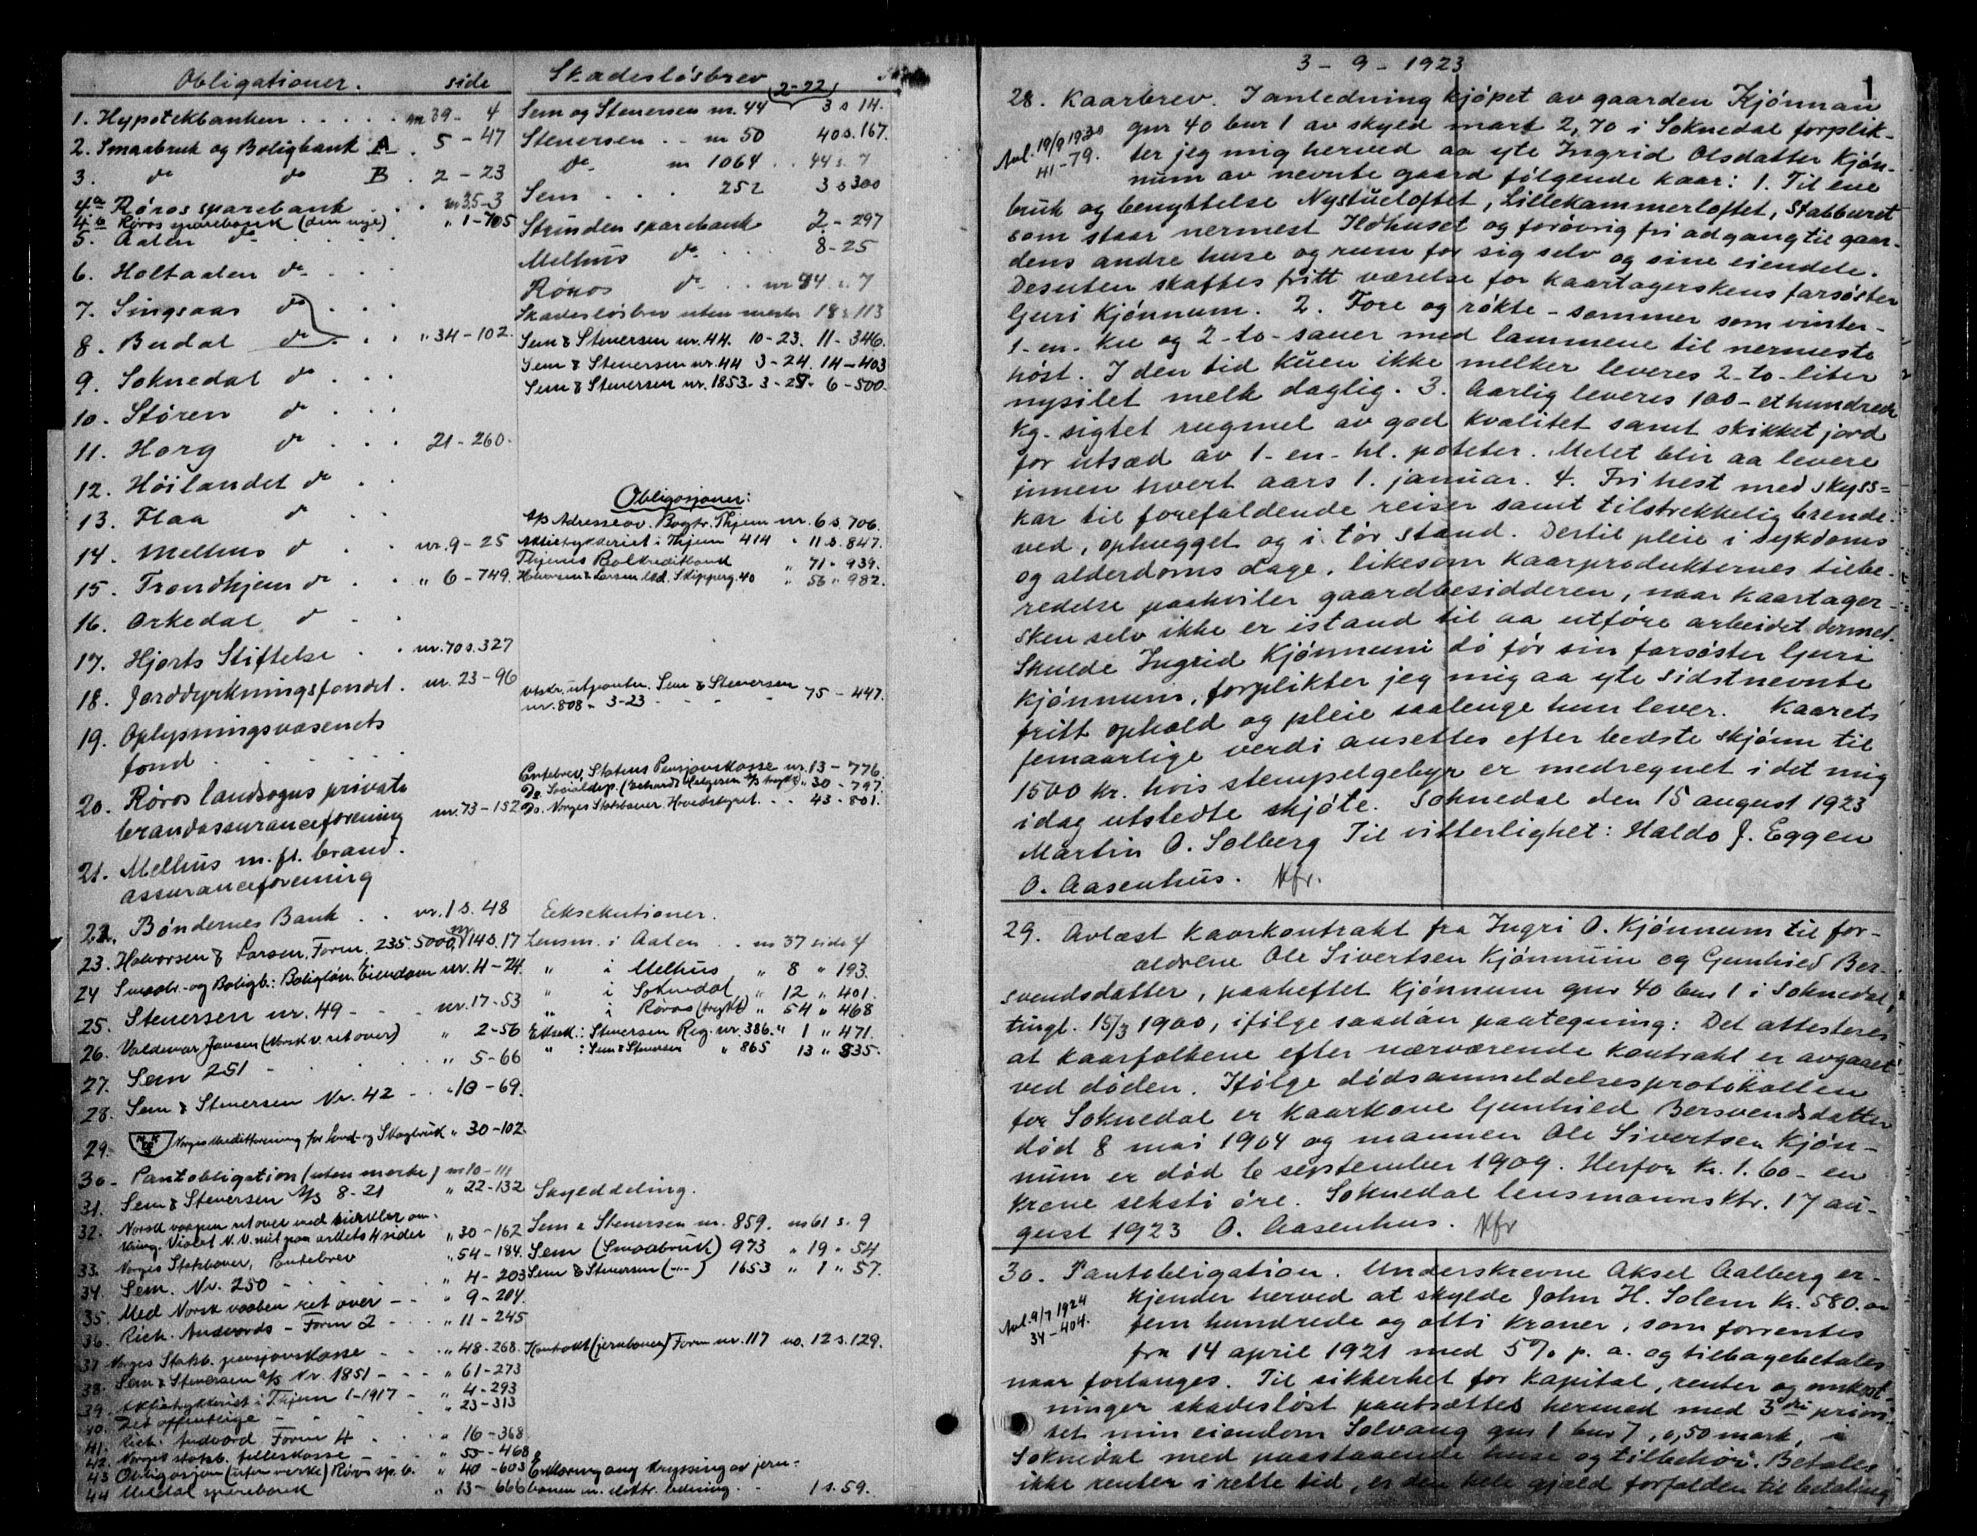 Obligationer. side
1. Hypotekbanken . . . . . nr 39 - 4
2. Smaabruk og Boligbank A . 5 - 47
3. do do B . 2 - 23
4a Røros sparebank . . . nr 35-3
4b Røros sparebank (den nye) " 1-705
5. Aalen do
6. Holtaalen do . . .
7. Singsaas do . .
8. Budal do . . " 34-102.
9. Soknedal do . . .
10. Støren do . . .
11. Horg do . . . 21-260.
12. Høilandet do . .
13. Flaa do . .
14. Melhus do . . nr. 9 - 25
15. Trondhjem do . . " 6-749.
16. Orkedal do .
17. Hjorts Stiftelse . . nr. 70 s. 327
18. Jorddyrkningsfondet . nr. 23-96
19. Oplysningsvæsenets
fond . . . .
20. Røros landsogns private
brandassuranceforening nr. 73-152
21. Melhus m. fl. brand.
assuranceforening
22. Bøndernes Bank . . nr. 1 s. 48
23. Halvorsen & Larsen, Form. 235. 5000. nr 14 s. 17
24 Smaabr.- og Boligb.: Boliglån. Eiendom nr. 4-24.
25. Stenersen nr. 49 - - nr. 17-53
26. Valdemar Jansen (Norsk v. ret over) " 2-56
27. Sem 251 - " 5-66
28. Sem & Stenersen Nr. 42 - . " 10-69.
29. Norges Kreditforening for Land- og Skogbruk " 30-102.
30 - Pantobligation (uten merke) nr 10-111
31. Sem & Stenersen A/S 8-21 " 22-132
32. Norsk vaapen ret over med
" 30-162
33. Norges Statsbaner, Rentebrev " 54-184.
34. Sem. Nr. 250 - - " 4-203
35. Med Norsk vaaben ret over - - " 9-204.
36. Rich. Andvords - Form 2 - - " 11-245
37 Norges Statsb. pensjonskasse - " 48-268.
38. Sem & Stenersen A/S Nr. 1851 - - " 61-273
39. Aktietrykkeriet i Thjem 1-1917 - " 4-293
40. Det offentlige - " 23-313
41. Rich. Andvord Form 4 . " 16-368.
42. Norges statsb. felleskasse - " 55-468
43 Obligasjon (uten merke) Røros sp. b. " 40-603
44 Meldal sparebank " 13-666
Skadesløsbrev
(2-22)
Sem og Stenersen nr. 44 3 s 14.
Stenersen . . nr 50 40 s. 167.
do. nr 1064 . . 44 s. 7
Sem . . 252 3 s 300
Strinden sparebank 2-297
Melhus do. . . 8-25
Røros do . . nr 84 s. 7
Skadesløsbrev uten merke 18 s 113
Sem & Stenersen nr. 44. 10-23. 11-346.
Sem & Stenersen nr. 44 3-24. 14-403
Sem & Stenersen nr. 1853. 3-28. 6-500.
Obligasjoner:
A/S Adresseav. Bogtr. Thjem nr. 6 s. 706.
Aktietrykkeriet i Thjem 414 " 11 s. 847.
Thjems Realkreditbank " 71-939.
Halvorsen & Larsen Ltd. Skipperg. 40 " 56 " 982.
Utskr. utpantn. Sem & Stenersen
nr. 808 - 3-23 - - - 75-447.
Rentebrev, Statens Pensjonskasse nr. 13-776.
Do. Norges Statsbaner Hovedstyret . . . 43-801.
Eksekutioner.
Lensm. i Aalen . . nr 37 side 4
" i Melhus " 8 " 193.
" i Soknedal " 12 " 401.
" i Røros (trykt) " 54 " 468
Eksek.: Stenersen Reg. nr. 386. " 1 " 471.
" : Sem & Stenersen " 865 13 " 835.
Skylddeling.
Sem & Stenersen nr. 859. nr 61 s. 9
Sem (Smaabruk) 973 " 19 - 54
Sem & Stenersen (-"-) 1653 " 1 " 57.
Kontrakt (jernbaner) Form nr. 117 no. 12 s. 129.
Erklæring ang. kryssing av jern-
banen m. elektr. ledning. - 1 s. 59.
3 - 9 - 1923
1
28. Kaarbrev. I anledning kjøpet av gaarden Kjönnan
gnr 40 bnr 1 av skyld mark 2,70 i Soknedal forplik-
Avl. 19/9 1930
41-79.
ter jeg mig herved aa yte Ingrid Olsdatter Kjön-
num av nevnte gaard følgende kaar: 1. Til ene
bruk og benyttelse Nystueloftet, Lillekammerloftet, Stabburet
som staar nermest Ildhuset og forøvrig fri adgang til gaar-
dens andre huse og rum for sig selv og sine eiendele.
Desuten skaffes fritt værelse for kaartagerskens farsøster
Guri Kjönnum. 2. Fore og røkte - sommer som vinter -
1 - en - ku og 2 - to - sauer med lammene til nermeste
høst. I den tid kuen ikke melker leveres 2 - to - liter
nysilet melk daglig. 3. Aarlig leveres 100 - ethundrede
kg. sigtet rugmel av god kvalitet samt skikket jord
for utsæd av 1 - en - hl. poteter. Melet blir aa levere
innen hvert aars 1. januar. 4. Fri hest med skyss-
kar til forefaldende reiser samt tilstrekkelig brende-
ved, ophugget og i tør stand. Dertil pleie i sykdoms
og alderdoms dage, likesom kaarproduktternes tilbe-
redelse paahviler gaardbesidderen, naar kaartager-
sken selv ikke er istand til aa utføre arbeidet dermed.
Skulde Ingrid Kjönnum dö før sin farsøster Guri
Kjönnum, forplikter jeg mig aa yte sidstnevnte
fritt ophold og pleie saalenge hun lever. Kaarets
femaarlige verdi ansettes efter bedste skjønn til
1500 kr. hvis stempelgebyr er medregnet i det mig
idag utstedte skjöte. Soknedal den 15 august 1923
Martin O. Solberg Til vitterlighet: Haldo J. Eggen
O. Aasenhus. Kfr.
29. Avlæst kaarkontrakt fra Ingri O. Kjönnum til for-
ældrene Ole Sivertsen Kjönnum og Gunhild Ber-
svendsdatter, paaheftet Kjönnum gnr 40 bnr 1 i Soknedal,
tingl. 15/3 1900, ifølge saadan paategning: Det attesteres
at kaarfolkene efter nærværende kontrakt er avgaaet
ved døden. Ifølge dødsanmeldelsesprotokollen
for Soknedal er kaarkone Gunhild Bersvendsdatter
død 8 mai 1904 og mannen Ole Sivertsen Kjön-
num er død 6 september 1909. Herfor kr. 1.60 - en
krone seksti øre. Soknedal lensmannsktr. 17 au-
gust 1923 O. Aasenhus. Kfr
30. Pantobligation. Underskrevne Aksel Aalberg er-
kjender herved at skylde John H. Solem kr. 580.00
Avl. 9/7 1924
34-404.
fem hundrede og otti kroner, som forrentes
fra 14 april 1921 med 5% p. a. og tilbagebetales
naar forlanges. Til sikkerhet for kapital, renter og omkost-
ninger skadesløst pantsættes hermed med 3die priori-
tet min eiendom Solvang gnr 1 bnr 7, 0,50 mark, i
Soknedal med paastaaende huse og tilbehør. Betales
ikke renter i rette tid, er den hele gjæld forfalden til betaling